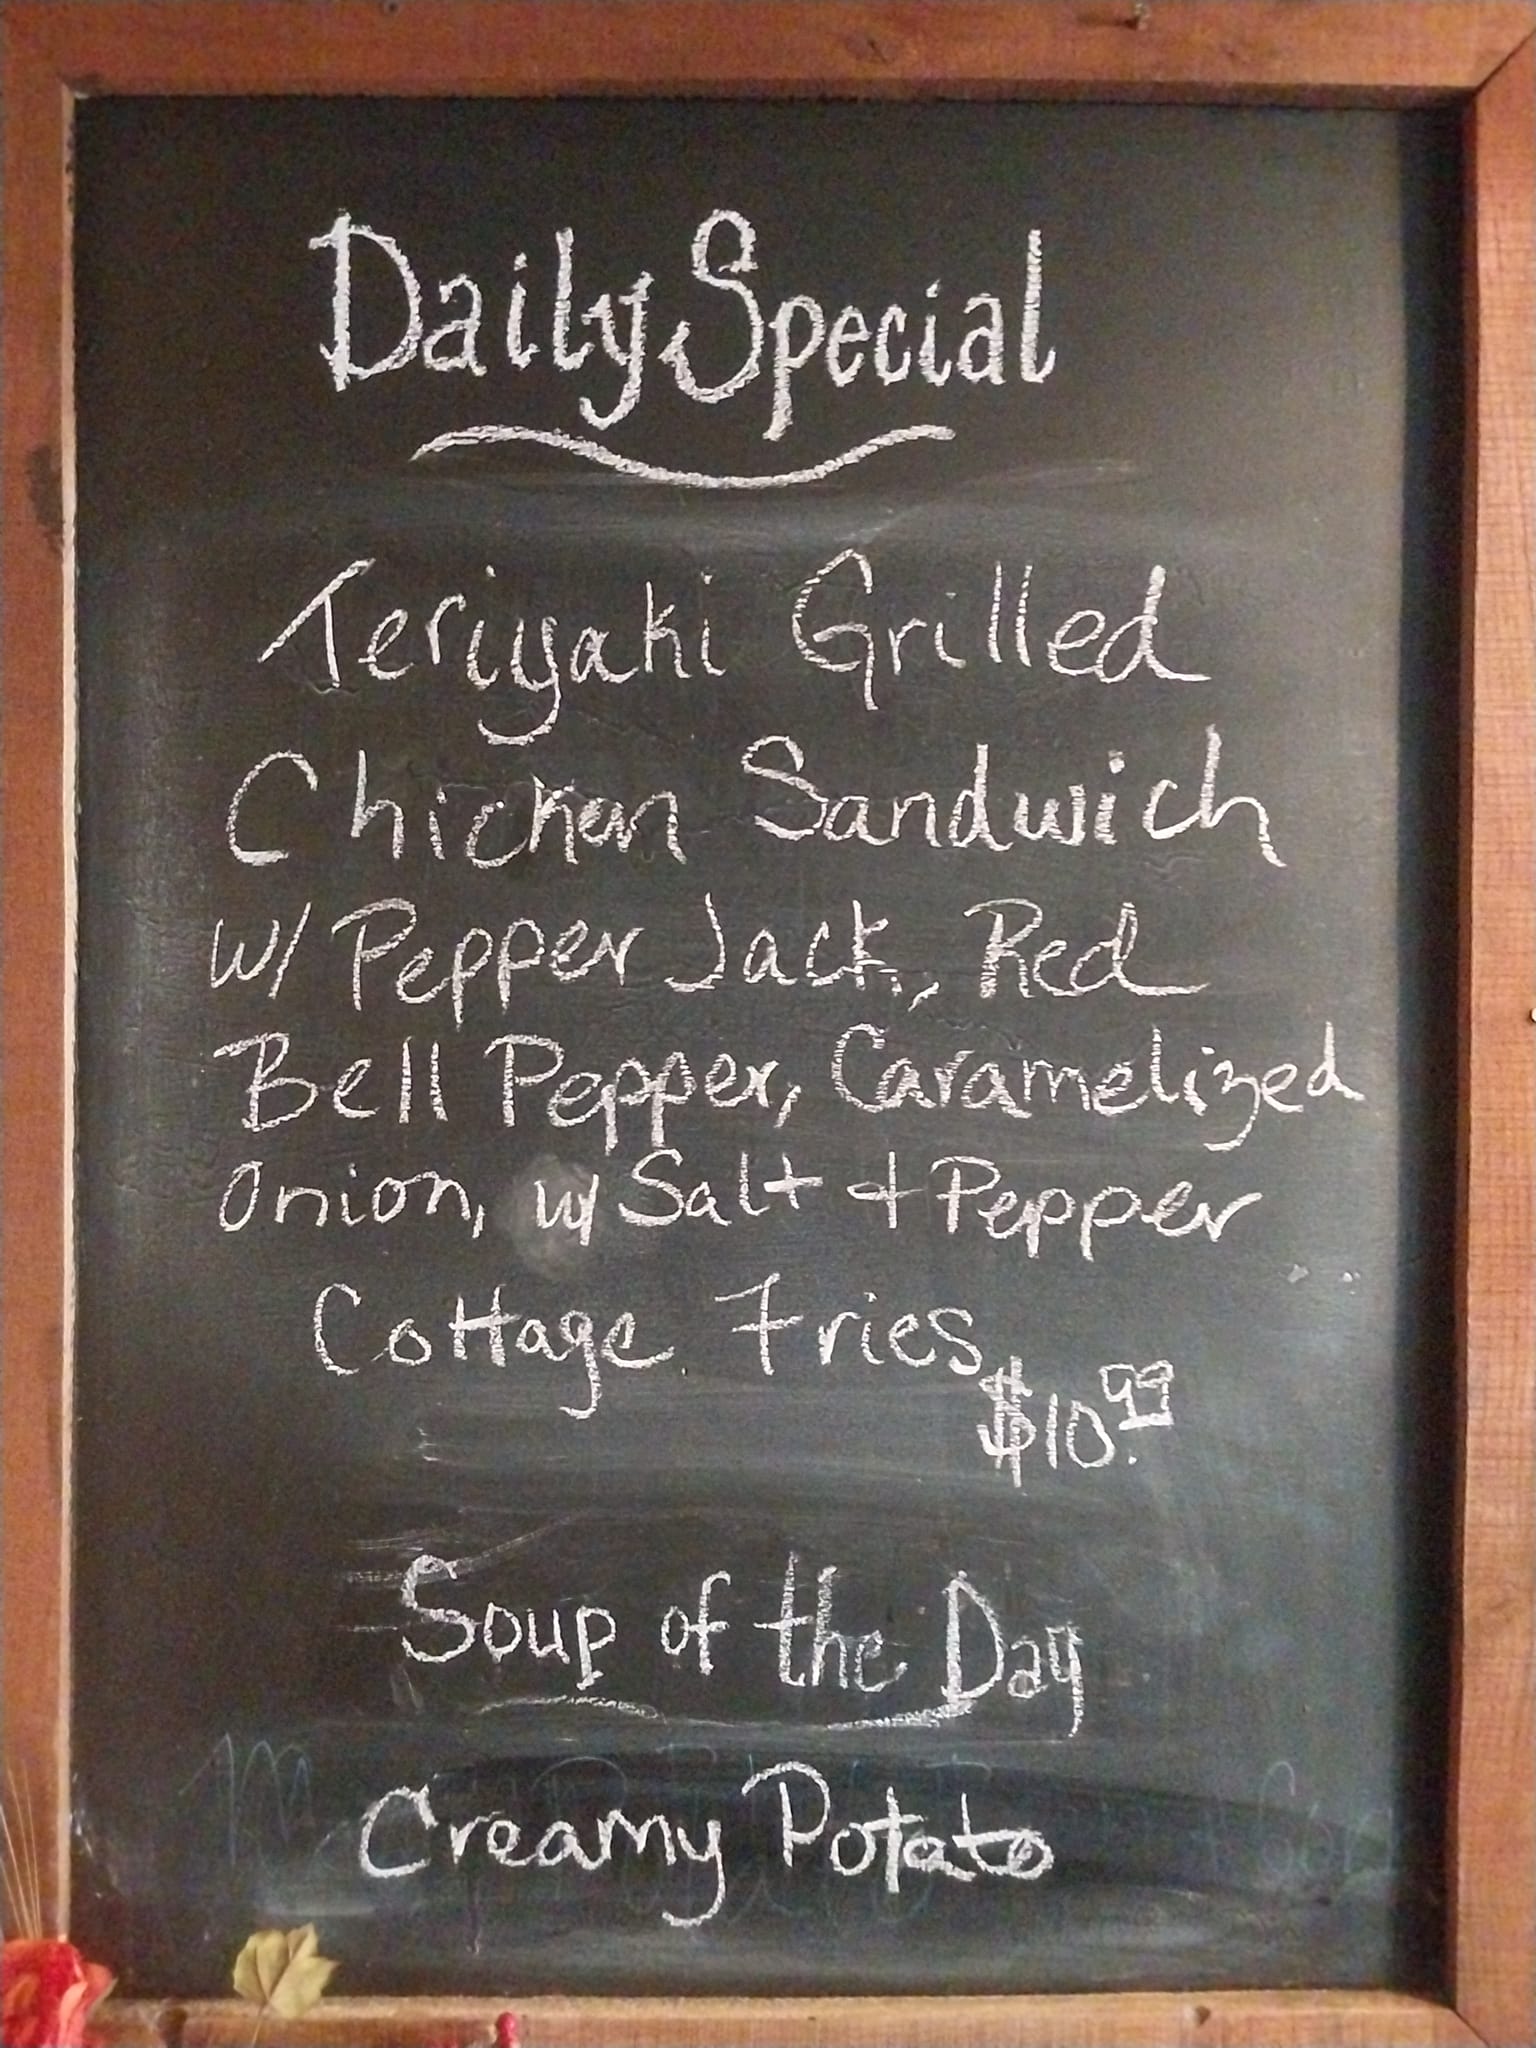 Daily Special
Teriyaki Grilled
Chicken Sandwich
w/ Pepper Jack, Red
Bell Pepper, Caramelized
Onion, w/ Salt + Pepper
Cottage Fries
$10.99
Soup of the Day
Creamy Potato